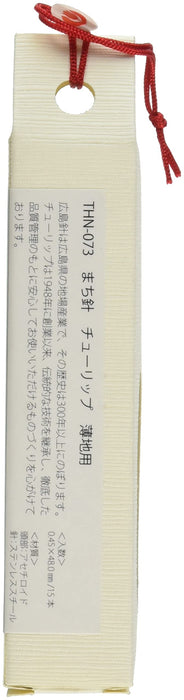 THN-073　まち針　チューリップ　薄地用
広島針は広島県の地場産業で、その歴史は300年以上にのぼります。
チューリップは1948年に創業以来、伝統的な技術を継承し、徹底した
品質管理のもとに安心してお使いいただけるものづくりを心がけて
おります。
<入数>
0.45×48.0mm/15本
<材質>
頭部:アセチロイド
針:ステンレススチール